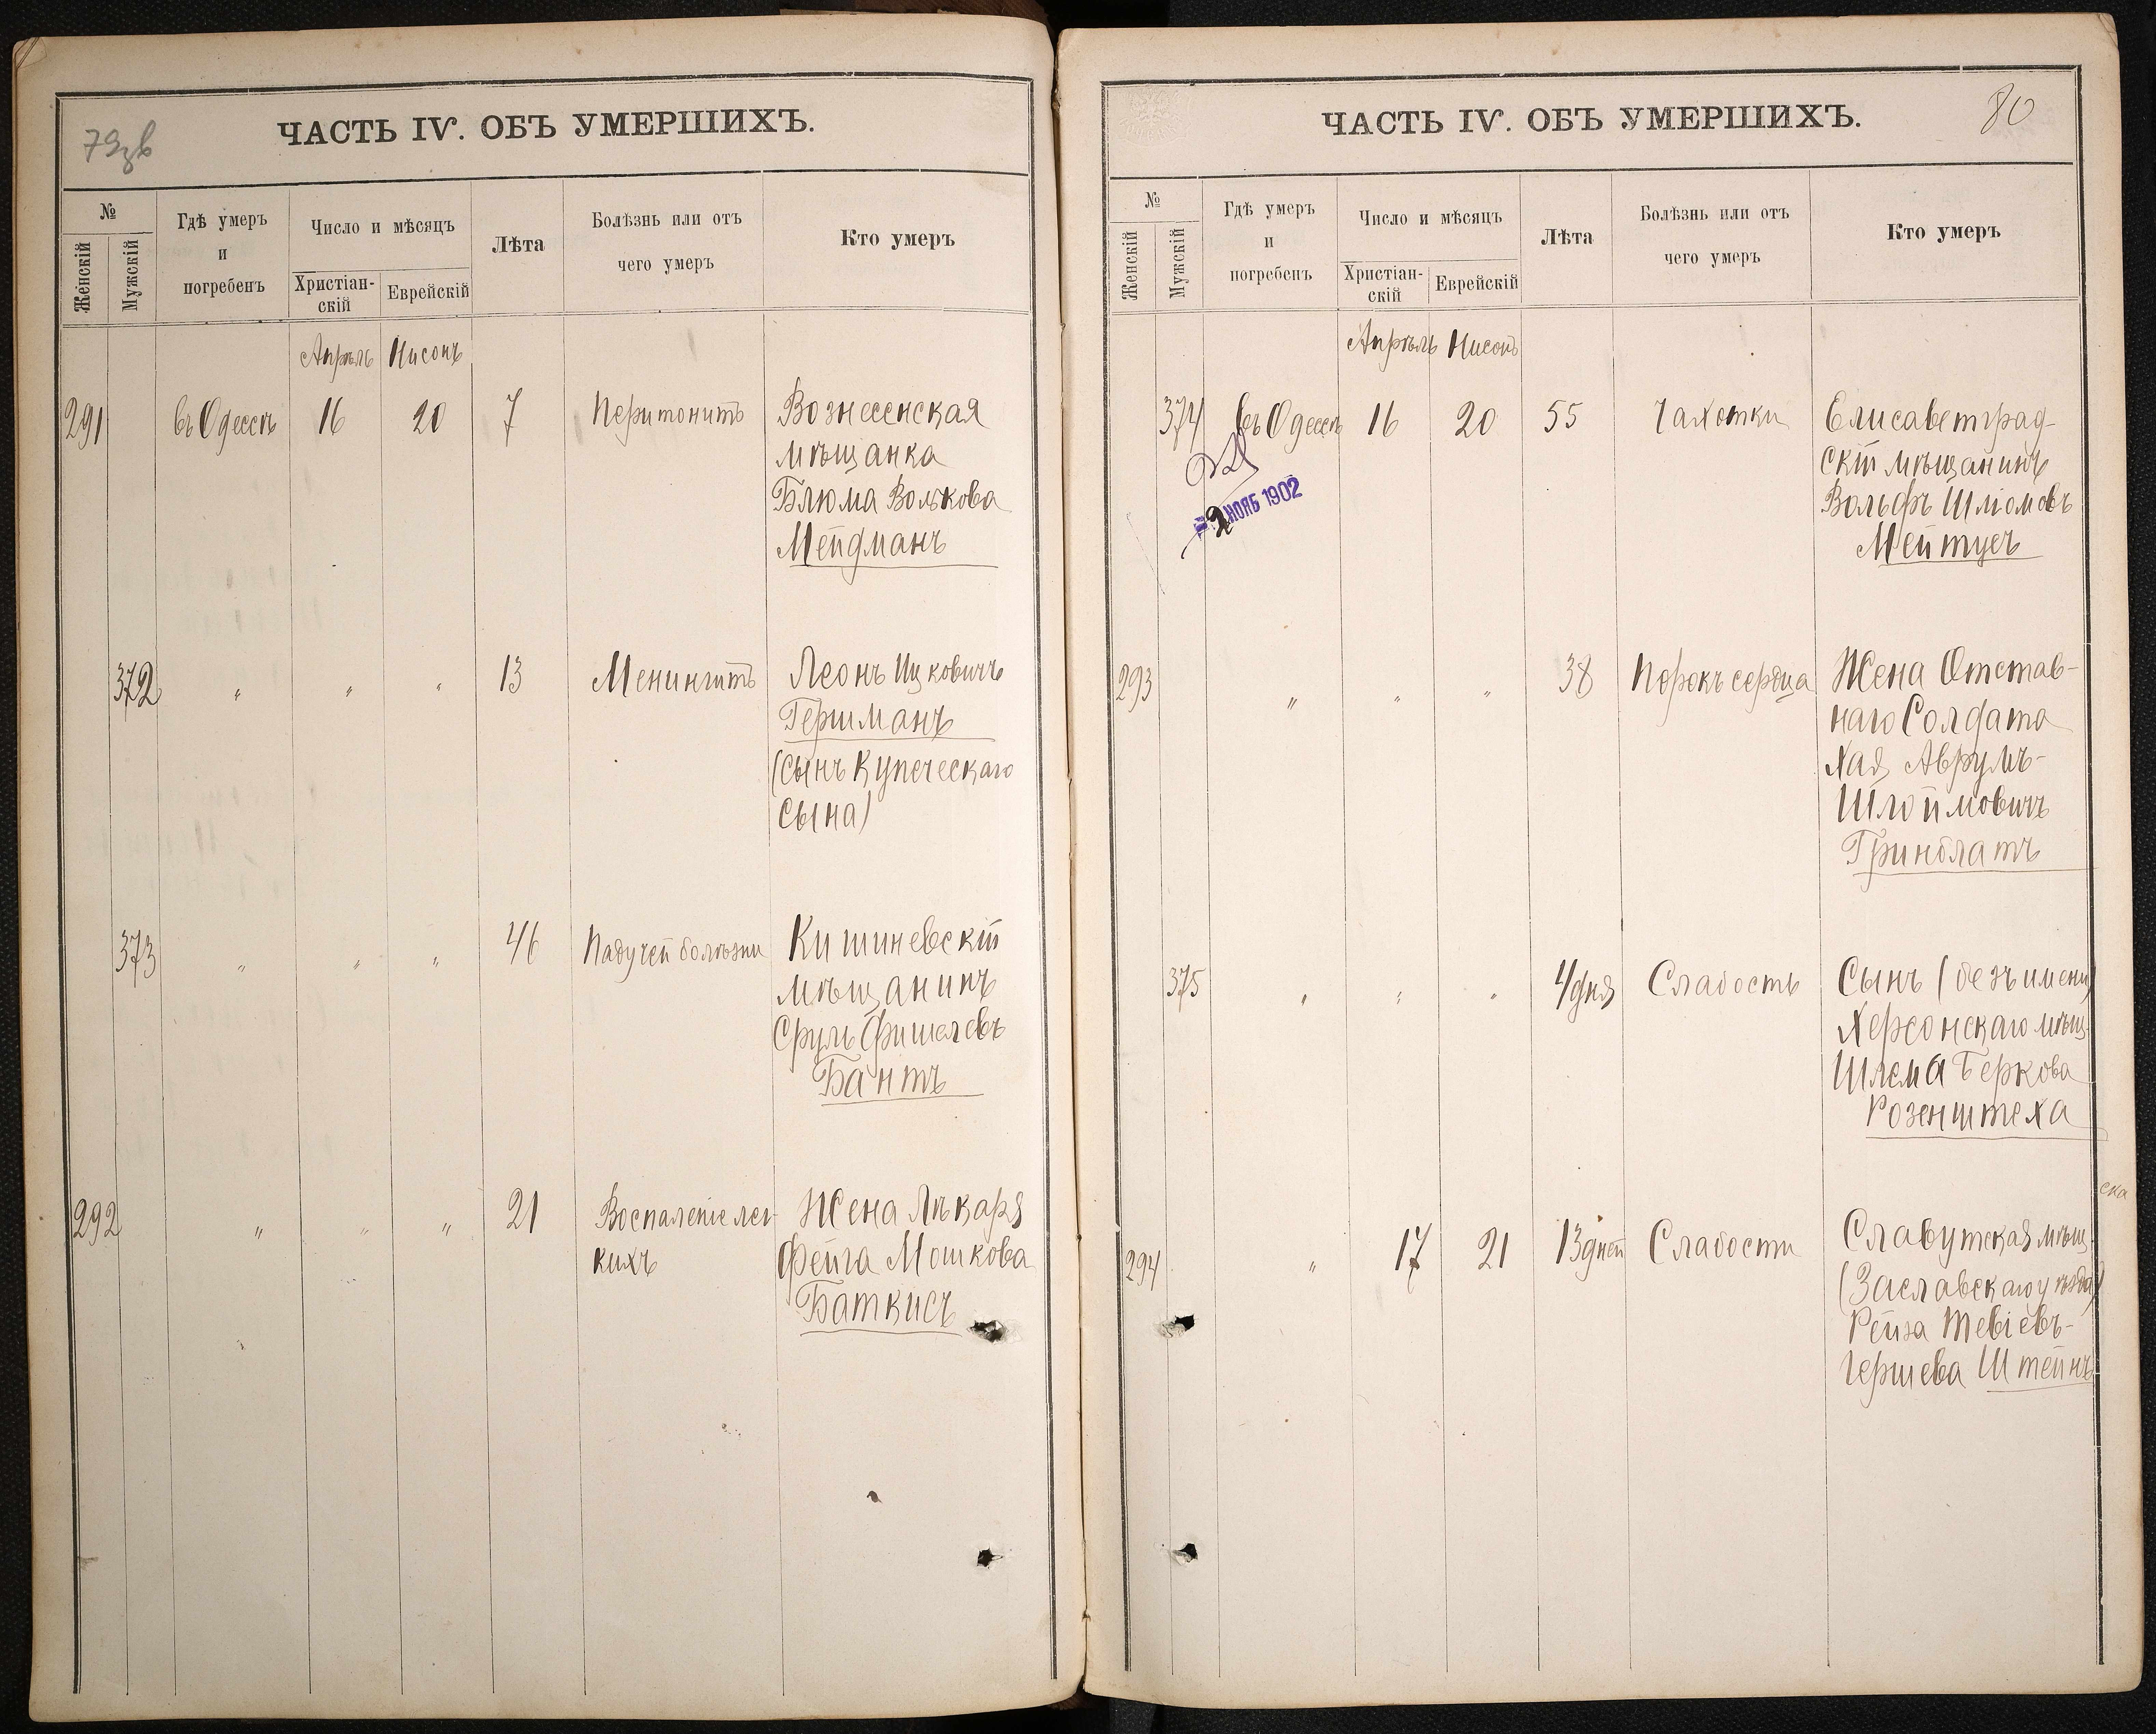 79зв
ЧАСТЬ IV. ОБЪ УМЕРШИХЪ.
№
Женскій
Мужскій
Гдѣ умеръ
и
погребенъ
Число и мѣсяцъ
Христіан-
скій
Еврейскій
Лѣта
Болѣзнь или отъ
чего умеръ
Кто умеръ
Апрѣль Нисонъ
291 въ Одессѣ 16 20 7 Перитонитъ Вознесенская
мѣщанка
Блюма Волькова
Мейдманъ
372 " " " 13 Менингитъ Леонъ Ицковичъ
Гершманъ
(сынъ купеческаго
сына)
373 " " " 46 Падучей болѣзни Кишиневскій
мѣщанинъ
Сруль Фишелевъ
Бантъ
292 " " " 21 Воспаленіе лег- Жена Лѣкаря
кихъ Фейга Мошкова
Баткисъ
80
ЧАСТЬ IV. ОБЪ УМЕРШИХЪ.
№
Женскій
Мужскій
Гдѣ умеръ
и
погребенъ
Число и мѣсяцъ
Христіан-
скій
Еврейскій
Лѣта
Болѣзнь или отъ
чего умеръ
Кто умеръ
Апрѣль Нисонъ
374 въ Одессѣ 16 20 55 Чахотки Елисаветград-
скій мѣщанинъ
Вольфъ Шліомовъ
Мейтусъ
2 НОЯБ 1902
293 " " " 38 Порокъ сердца Жена Отстав-
наго Солдата
Хая Аврумъ-
Шлоймовичъ
Гринблатъ
375 " " " 4 дня Слабость Сынъ (безъ имени)
Херсонскаго мѣщ.
Шлема Беркова
Розенштеха
294 " 17 21 13 дней Слабости Славутская мѣщ.
(Заславскаго уѣзда)
Рейза Тевіевъ-
Гершева Штейнъ
ска